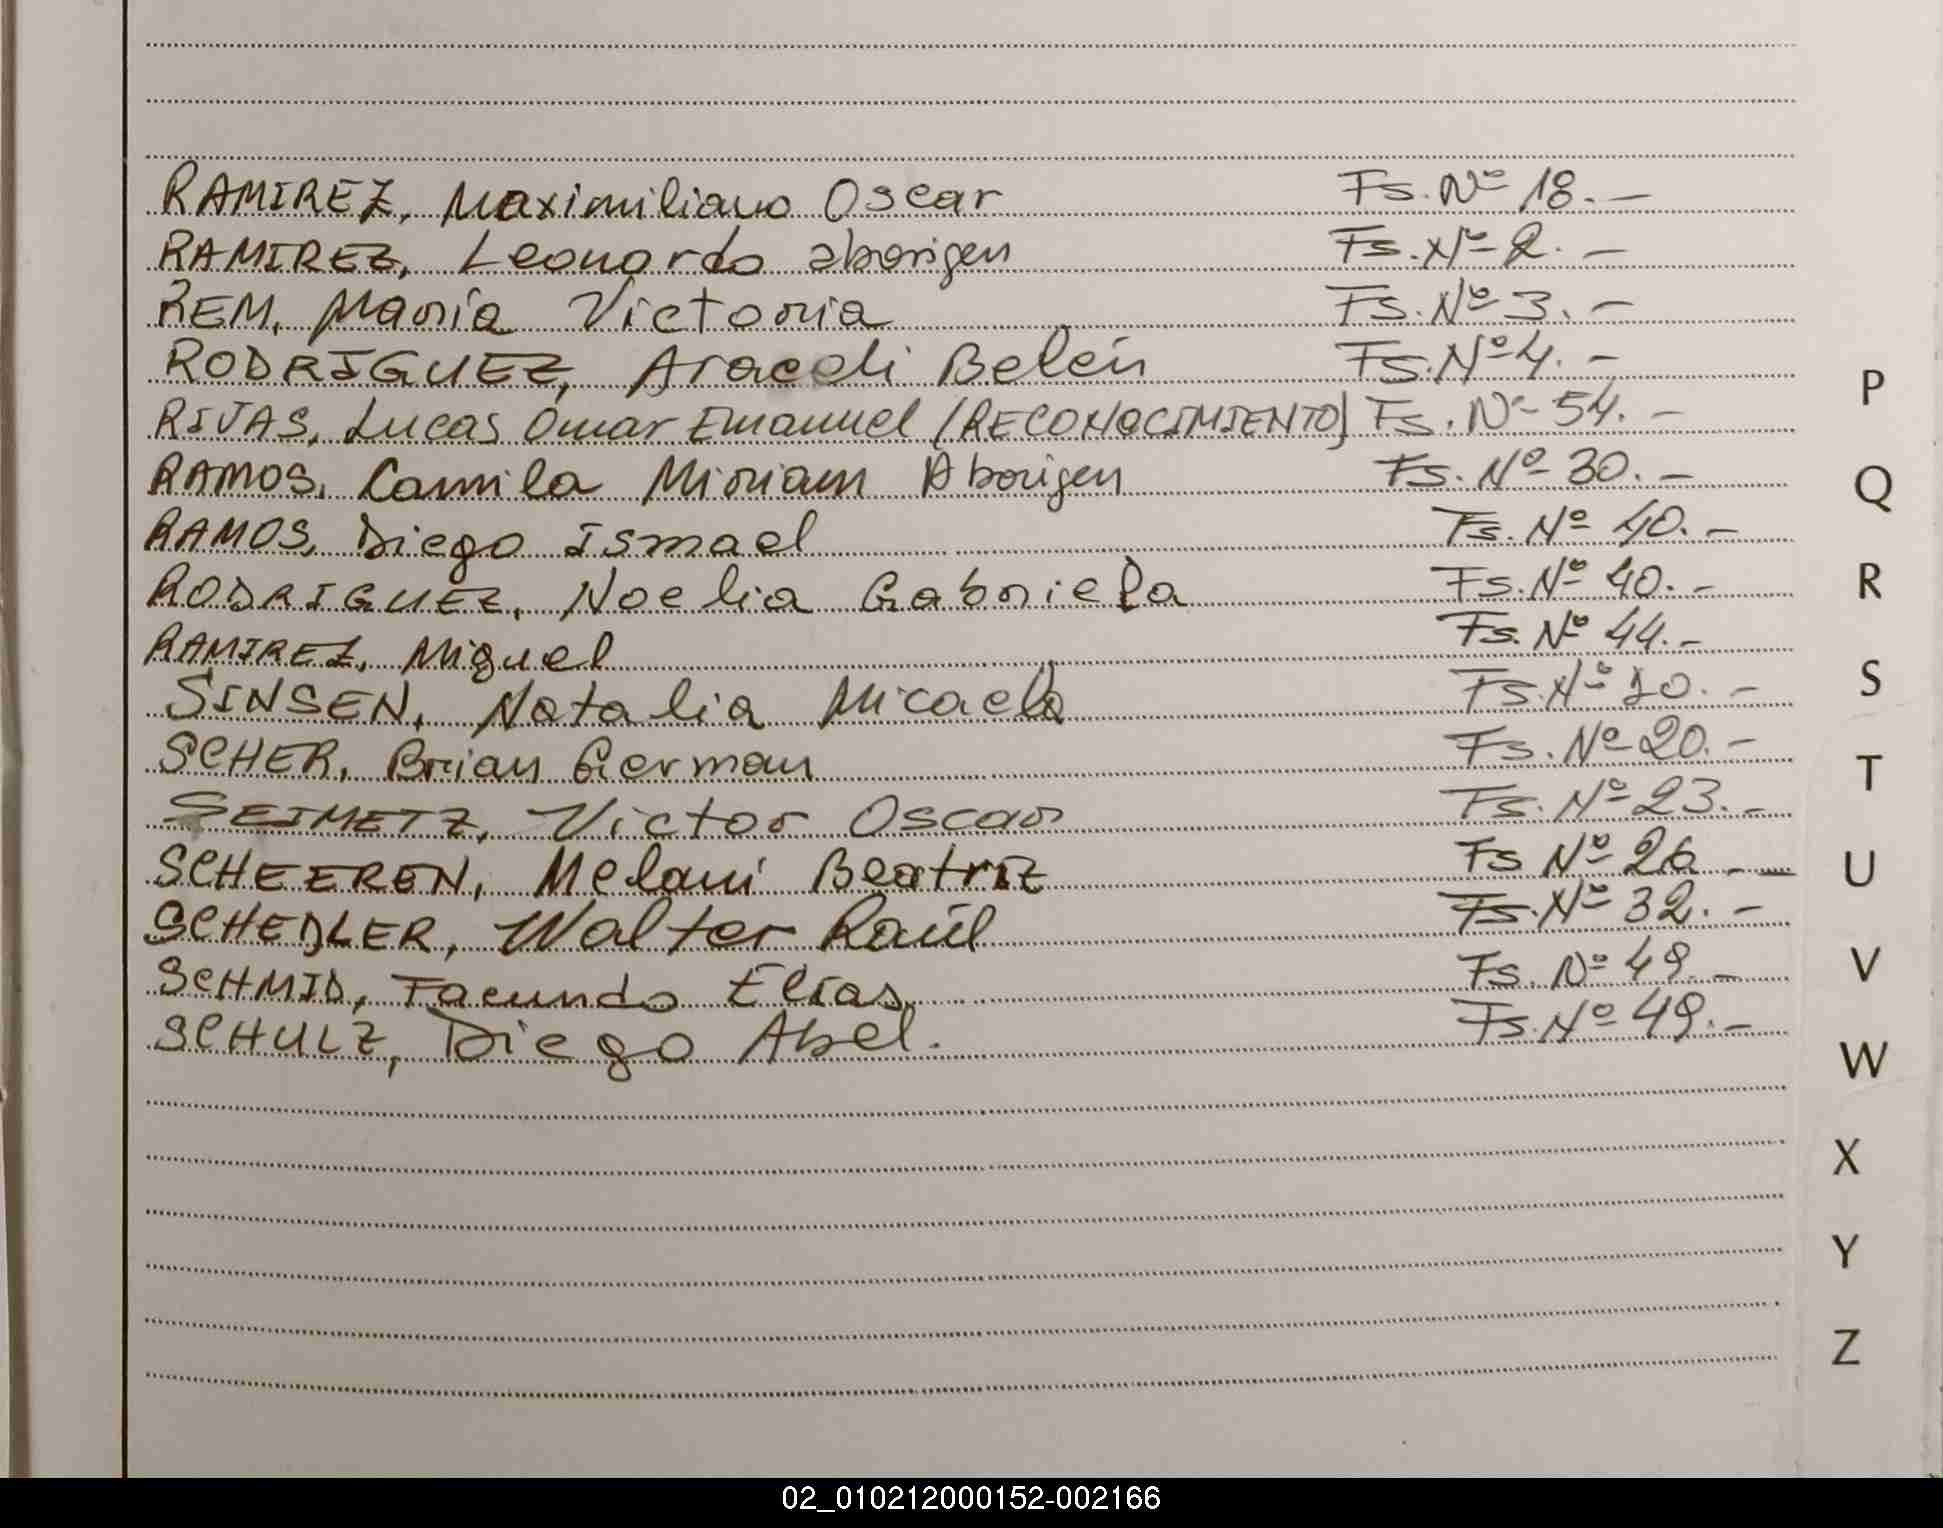 RAMIREZ, Maximiliano Oscar Fs. Nº 18.-
RAMIREZ, Leonardo aborigen Fs. Nº 2.-
REM, María Victoria Fs. Nº 3.-
RODRIGUEZ, Araceli Belén Fs. Nº 4.-
P
RIJAS, Lucas Omar Emanuel (RECONOCIMIENTO) Fs. Nº 54.-
RAMOS, Camila Miriam Aborigen Fs. Nº 30.-
Q
RAMOS, Diego Ismael Fs. Nº 40.-
RODRIGUEZ, Noelia Gabriela Fs. Nº 40.-
R
RAMIREZ, Miguel Fs. Nº 44.-
SINSEN, Natalia Micaela Fs. Nº 10.-
S
SCHER, Brian German Fs. Nº 20.-
T
SEIMETZ, Victor Oscar Fs. Nº 23.-
SCHEEREN, Melani Beatriz Fs Nº 26.-
U
SCHEDLER, Walter Raúl Fs. Nº 32.-
SCHMID, Facundo Elías Fs. Nº 49.-
V
SCHULZ, Diego Abel. Fs. Nº 49.-
W
X
Y
Z
02_010212000152-002166